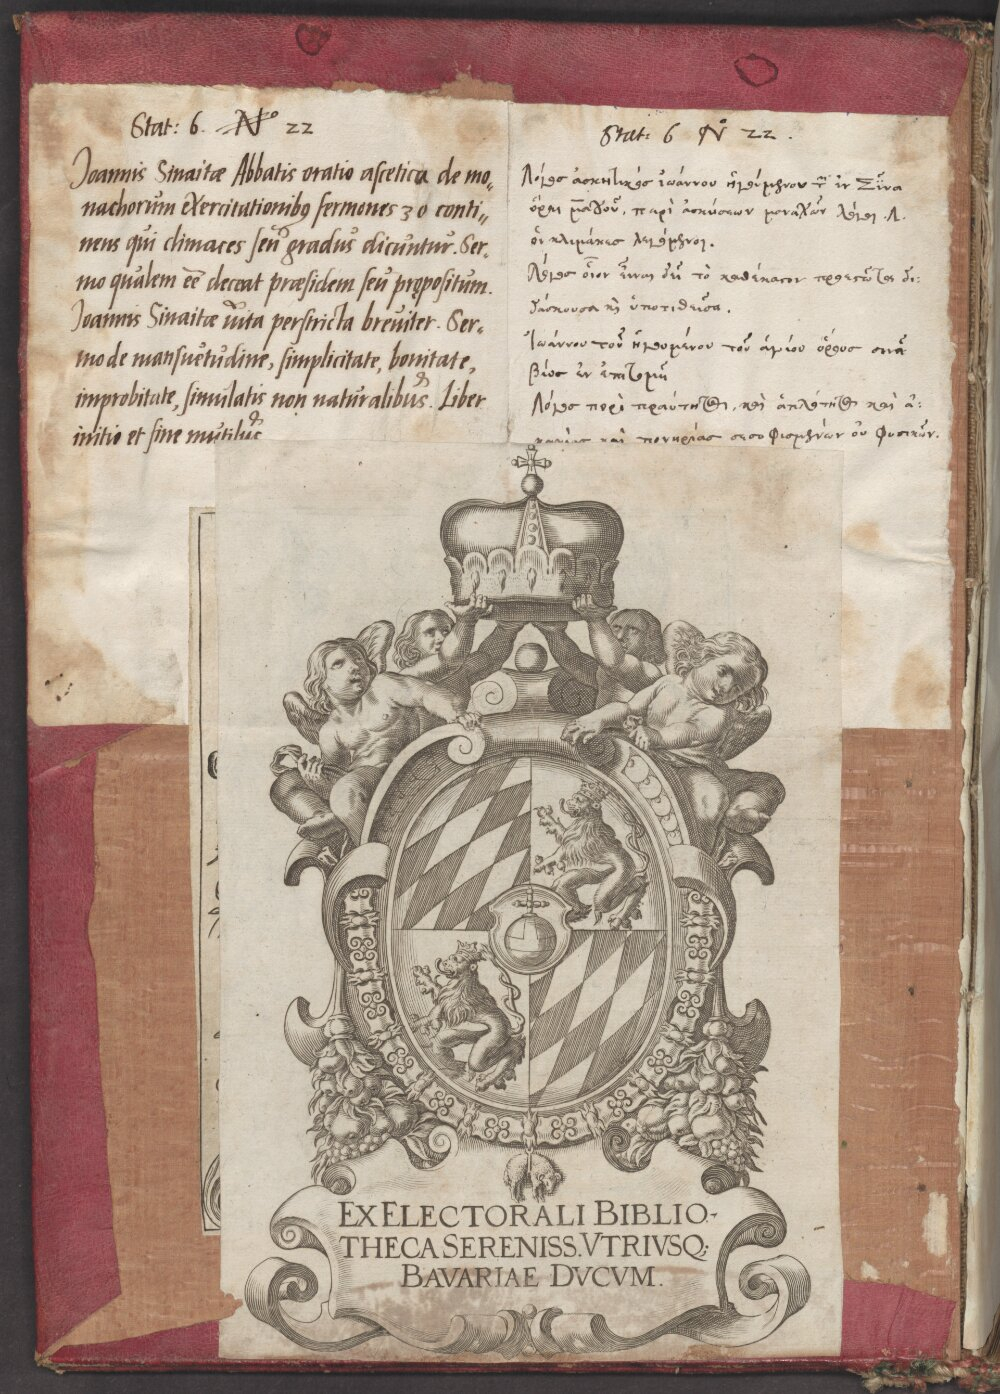 Stat: 6. Nº 22
Joannis Sinaitæ Abbatis oratio ascetica de mo,,
nachorum exercitationibq sermones 30 conti,,
nens qui climaces seu gradus dicuntur. Ser,,
mo qualem eē deceat præsidem seu propositum.
Joannis Sinaitæ vita perstricta breviter. Ser,,
mo de mansuetudine, simplicitate, bonitate,
improbitate, simulatis non naturalibus. Liber
initio et fine mutilus
Stat: 6 Nº 22.
Λόγος ἀσκητικὸς ἰωάννου ἡγουμένου τῶν ἐν Σινᾶ
ὄρει μοναχῶν, περὶ ἀσκήσεων μοναχῶν λόγοι .Λ.
οἱ κλίμακες λεγόμενοι.
Λόγος οἷον εἶναι δεῖ τὸ καθέκαστον προεστῶτα δι:
δάσκουσα καὶ ὑποτιθεῖσα.
Ἰωάννου τοῦ ἡγουμένου τοῦ ἁγίου ὄρους σινᾶ
βίος ἐν ἐπιτομῇ
Λόγος περὶ πραότητος, καὶ ἁπλότητος καὶ ἀ:
κακίας καὶ πονηρίας σεσοφισμένων οὐ φυσικῶν.
EX ELECTORALI BIBLIO-
THECA SERENISS. VTRIVSQ;
BAVARIAE DVCVM.